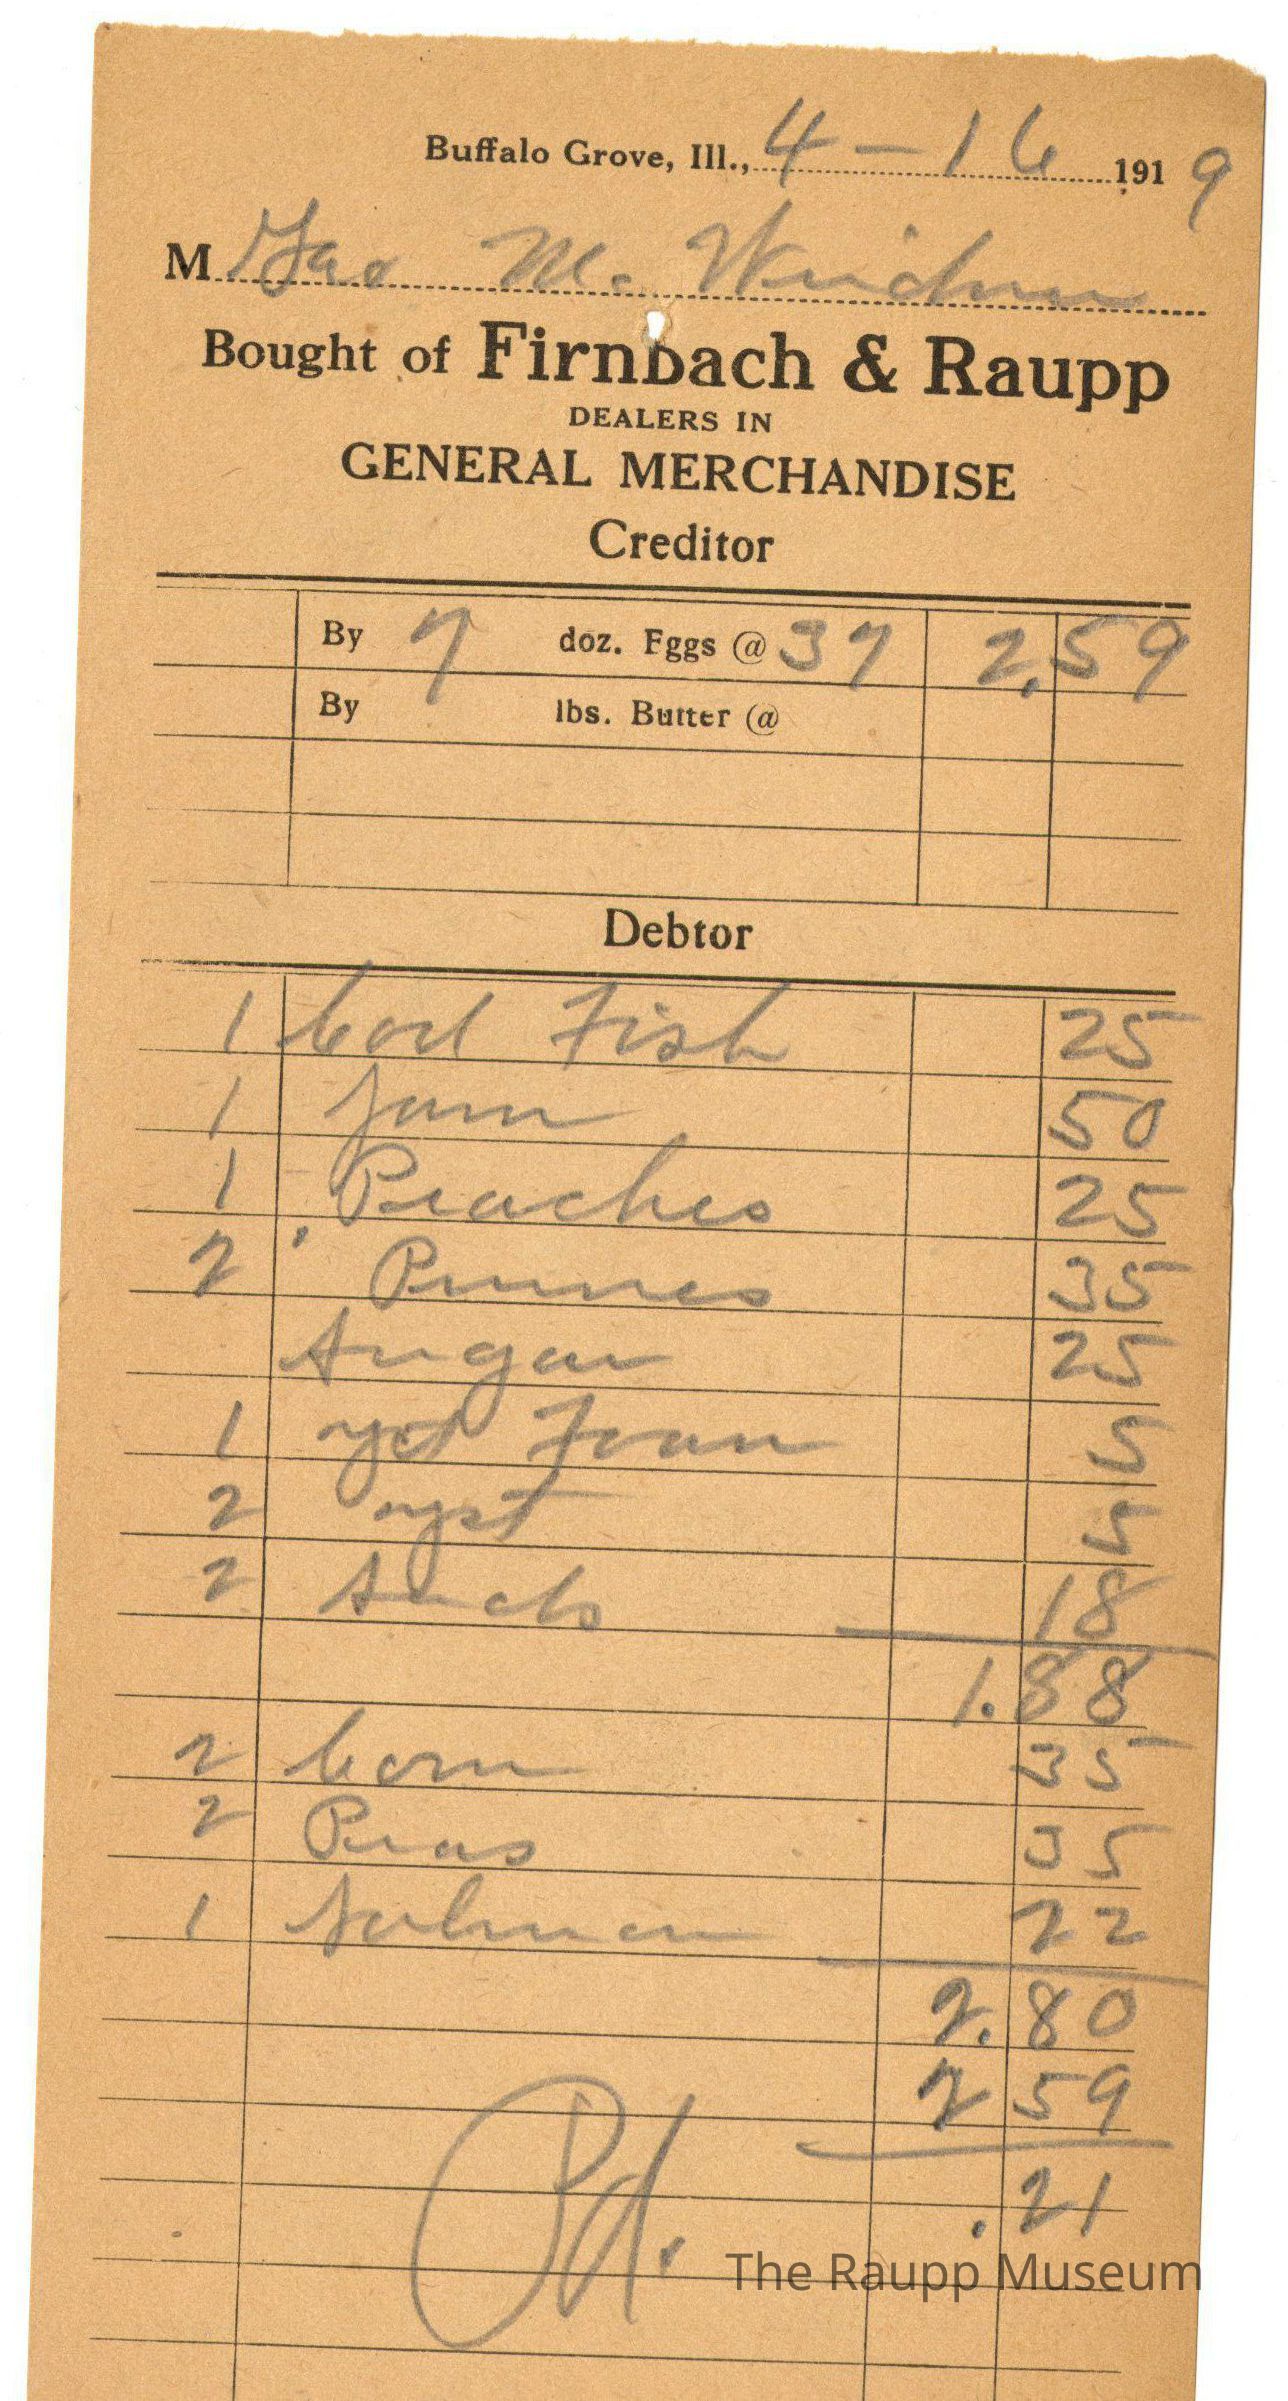 Buffalo Grove, Ill., 4-16 1919
M Geo M. Weidner
Bought of Firnbach & Raupp
DEALERS IN
GENERAL MERCHANDISE
Creditor
By 7 doz. Eggs @ 37 2.59
By lbs. Butter @
Debtor
1 Cod Fish 25
1 Jam 50
1 Peaches 25
2 Prunes 35
Sugar 25
1 Foam 5
2 yst 5
2 18
1.88
2 Corn 35
2 Peas 35
1 Salmon 22
2.80
2 59
.21
Pd.
The Raupp Museum